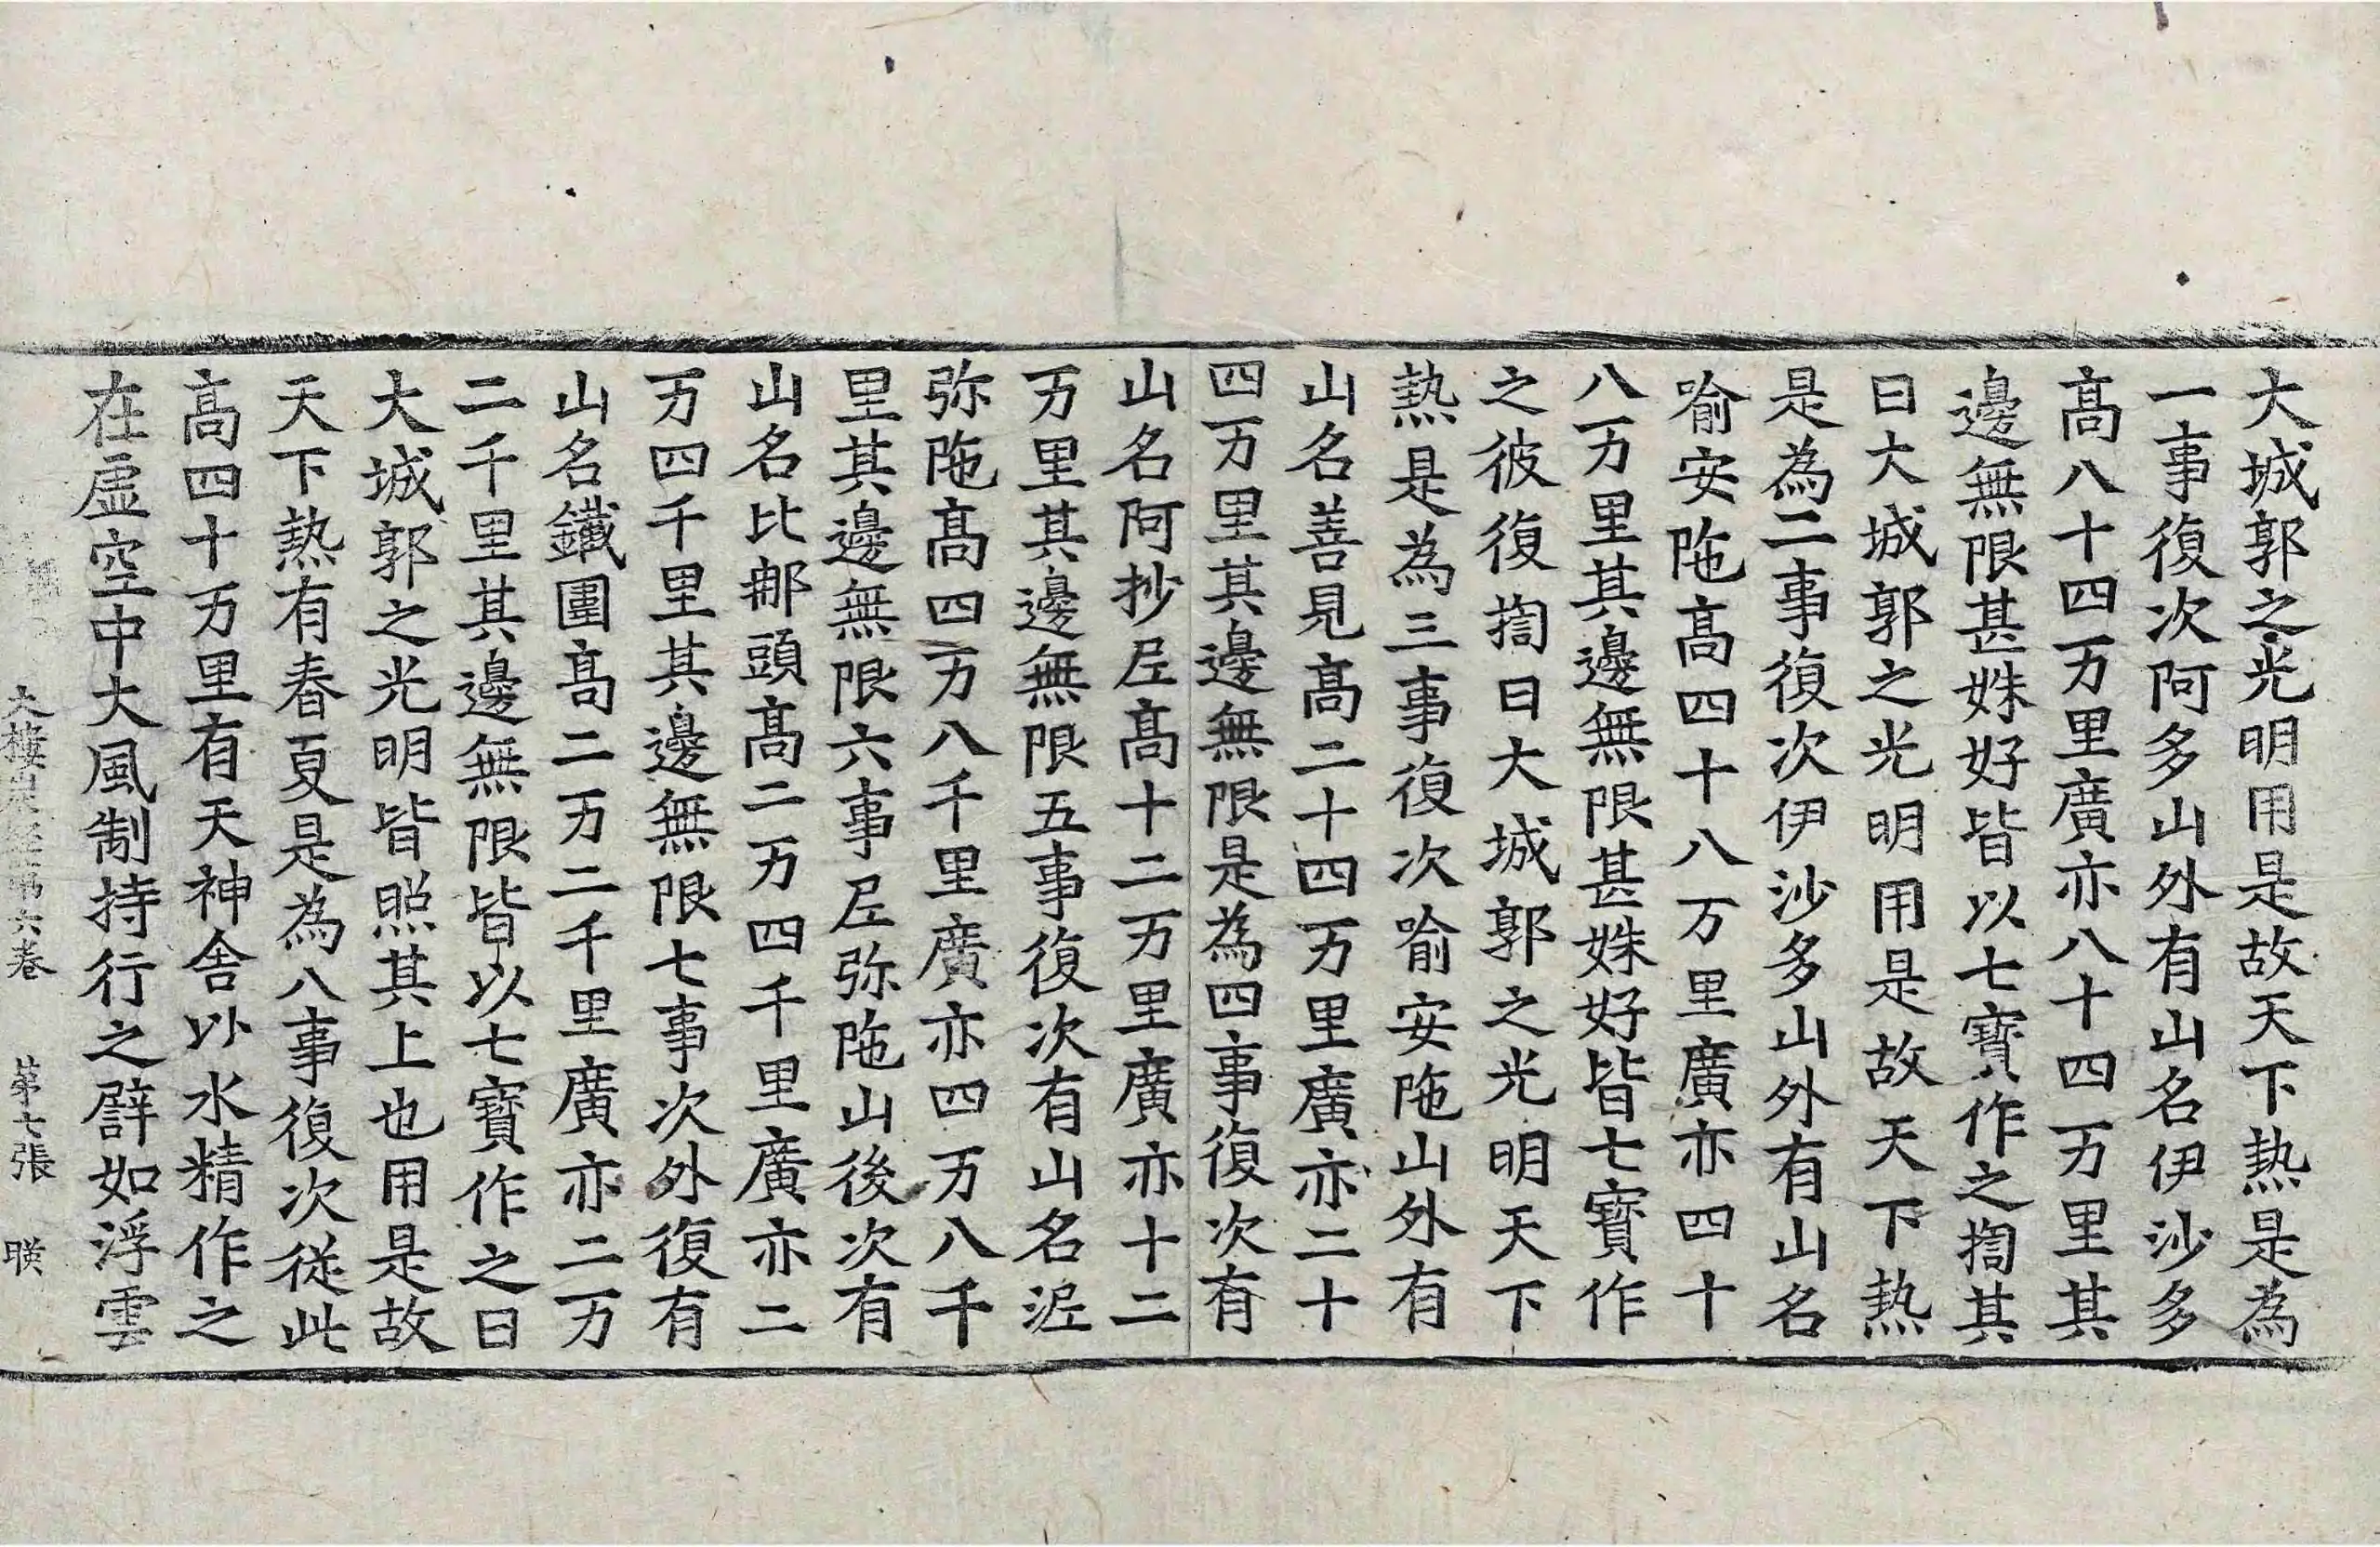 大城郭之光明用是故天下熱是為
一事復次阿多山外有山名伊沙多
髙八十四万里廣亦八十四万里其
邊無限甚姝好皆以七寶作之揈其
日大城郭之光明用是故天下熱
是為二事復次伊沙多山外有山名
喻安陁髙四十八万里廣亦四十
八万里其邊無限甚姝好皆七寶作
之彼復揈日大城郭之光明天下
熱是為三事復次喻安陁山外有
山名善見髙二十四万里廣亦二十
四万里其邊無限是為四事復次有
山名阿抄𡰱髙十二万里廣亦十二
万里其邊無限五事復次有山名泥
弥陁髙四万八千里廣亦四万八千
里其邊無限六事𡰱弥陁山後次有
山名比郍頭髙二万四千里廣亦二
万四千里其邊無限七事次外復有
山名鐵圍髙二万二千里廣亦二万
二千里其邊無限皆以七寶作之日
大城郭之光明皆照其上也用是故
天下熱有春夏是為八事復次從此
髙四十万里有天神舍以水精作之
在虛空中大風制持行之辟如浮雲
大樓炭經第六卷 第七張 暎